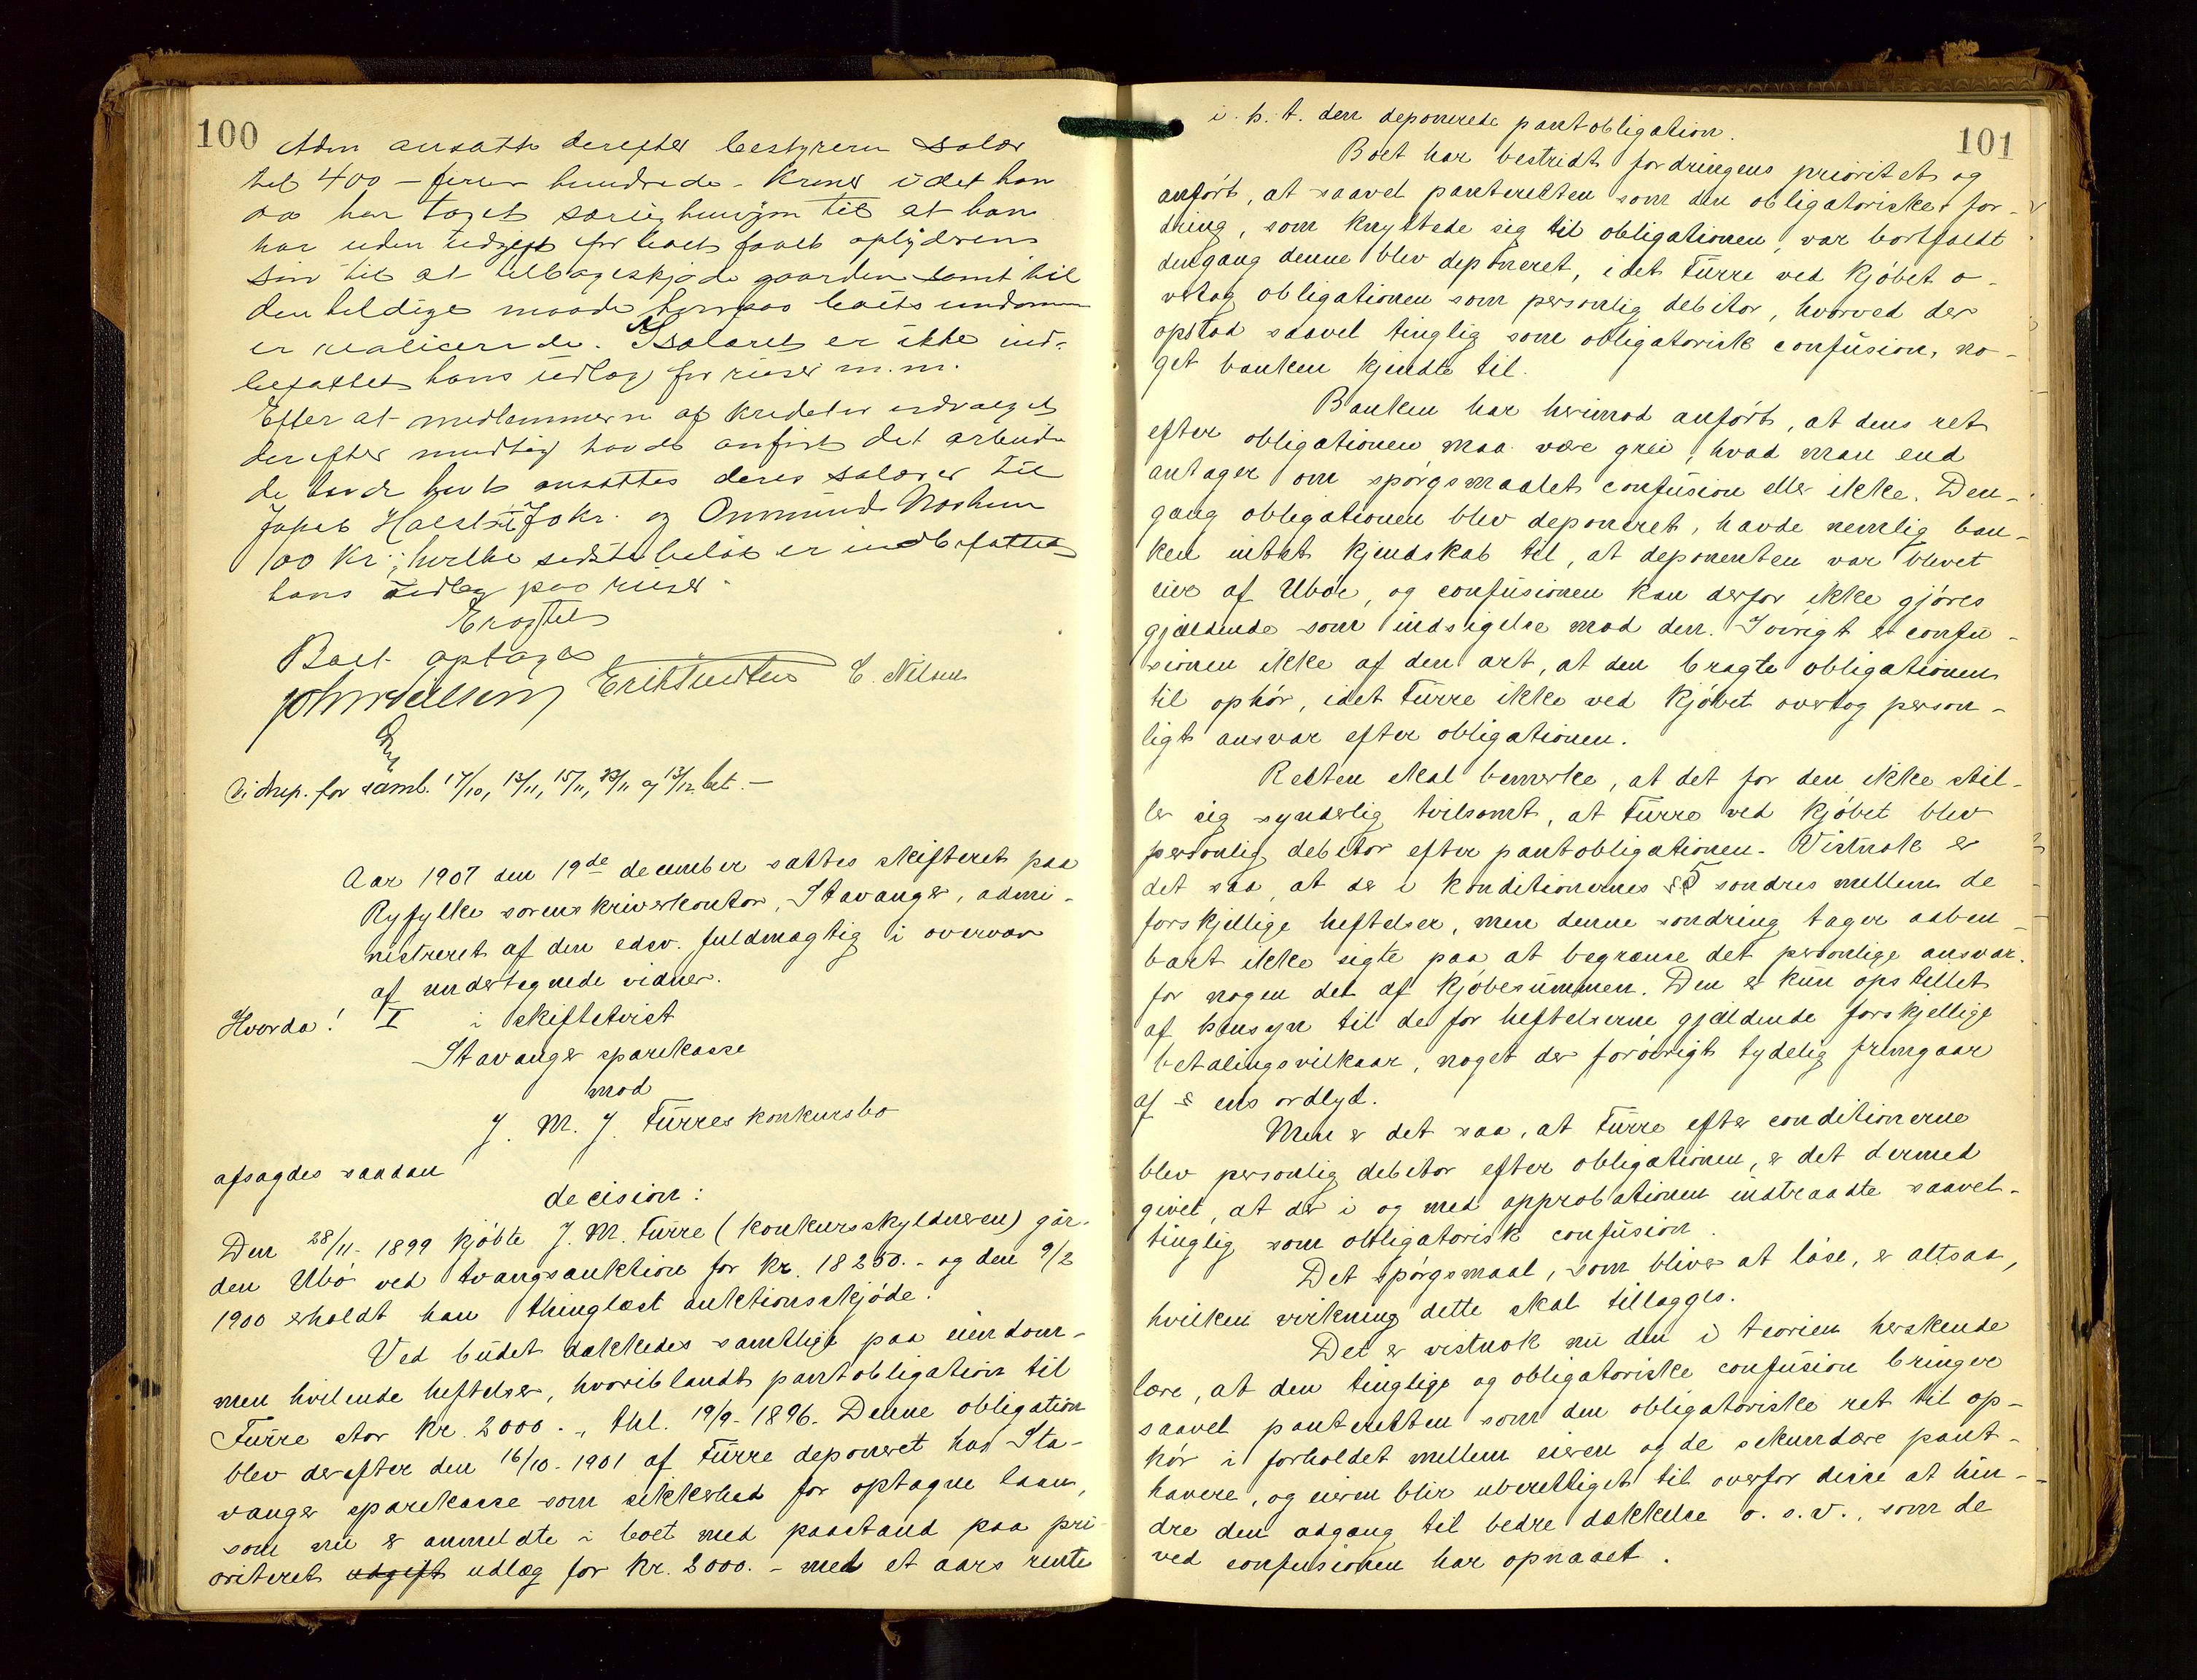 100
Adm ansatte derefter bestyreren salær
til 400 – fire hundrede – kroner idet han
da har taget særlig hensyn til at han
har uden udgift for boet faaet
sin til at tilbageskjøde gaarden samt til
den heldige maade hvorpaa boets eiendomme
er realiserede. I salæret er ikke ind-
befattet hans udlæg for reiser m.m.
Efter at medlemmerne af kreditorudvalget
derefter mundtlig havde anført det arbeide
de havde havt ansattes deres salærer til
Jakob Halst til 70 kr. og Ommund
100 kr; hvilke sidste beløb er indbefattet
hans udlæg paa reiser.
Boet optages
John Nilsen Erik Knudsen E. Nilsen
Vidnep. for samb. 17/10, 13/11, 15/11, 23/11 og 13/12 bet. –
Aar 1907 den 19de december sattes skifteret paa
Ryfylke sorenskriverkontor, Stavanger, admi-
nistreret af den edsv. fuldmægtig i overvær
af undertegnede vidner.
Hvorda! I i skiftetvist
Stavanger sparekasse
mod
J. M. J. Fürres konkursbo
afsagdes saadan
decision:
Den 28/11-1899 kjøbte J. M. Fürre (konkursskyldneren) går-
den Ubø ved tvangsauktion for kr. 18250.- og den 9/2
1900 erholdt han thinglæst auktionsskjøde.
Ved budet dækkedes samtlige paa eiendom-
men hvilende heftelser, hvoriblandt pantobligation til
Fürre stor kr. 2000.-, thl. 19/9-1896. Denne obligation
blev derefter den 16/10-1901 af Fürre deponeret hos Sta-
vanger sparekasse som sikkerhed for optagne laan,
som nu er anmeldte i boet med paastand paa pri-
oriteret udgift udlæg for kr. 2000.- med et aars rente
101
i. h. t. den deponerede pantobligation.
Boet har bestridt fordringens prioritet og
anført, at saavel panteretten som den obligatoriske for-
dring, som knyttede sig til obligationen, var bortfaldt
dengang denne blev deponeret, idet Fürre ved kjøbet o-
vertog obligationen som personlig debitor, hvorved der
opstod saavel tinglig som obligatorisk confusion, no-
get banken kjendte til.
Banken har herimod anført, at dens ret
efter obligationen maa være grei, hvad man end
antager om spørgsmaalet confusion eller ikke. Den-
gang obligationen blev deponeret, havde nemlig ban-
ken intet kjendskab til, at deponenten var blevet
eier af Ubøe, og confusionen kan derfor ikke gjøres
gjældende som indsigelse mod den. Iøvrigt er confu-
sionen ikke af den art, at den bragte obligationen
til ophør, idet Fürre ikke ved kjøbet overtog person-
ligt ansvar efter obligationen.
Retten skal bemerke, at det for den ikke stil-
ler sig synderlig tvilsomt, at Fürre ved kjøbet blev
personlig debitor efter pantobligationen. Vistnok er
det saa, at der i konditionernes § 5 sondres mellem de
forskjellige heftelser, men denne sondring tager aaben-
bart ikke sigte paa at begrænse det personlige ansvar
for nogen del af kjøbesummen. Den er kun opstillet
af hensyn til de for heftelserne gjældende forskjellige
betalingsvilkaar, noget der forøvrigt tydelig fremgaar
af § ens ordlyd.
Men er det saa, at Fürre efter conditionerne
blev personlig debitor efter obligationen, er det dermed
givet, at der i og med approbationen indtraadte saavel
tinglig som obligatorisk confusion.
Det spørgsmaal, som bliver at løse, er altsaa,
hvilken virkning dette skal tillægges.
Det er vistnok nu den i teorien herskende
lære, at den tinglige og obligatoriske confusion bringer
saavel panteretten som den obligatoriske ret til op-
hør i forholdet mellem eieren og de sekundære pant-
havere, og eieren blir uberettiget til overfor disse at hin-
dre den adgang til bedre dækkelse o. s. v., som de
ved confusionen har opnaaet.